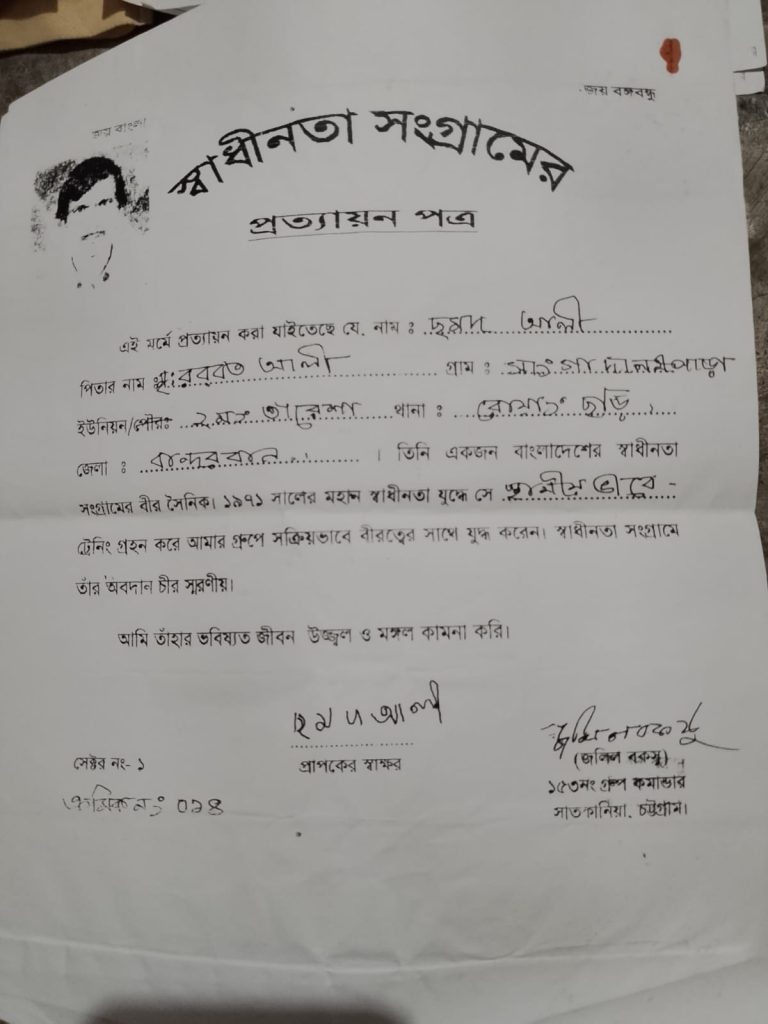 জয় বঙ্গবন্ধু
জয় বাংলা
স্বাধীনতা সংগ্রামের
প্রত্যায়ন পত্র
এই মর্মে প্রত্যায়ন করা যাইতেছে যে, নাম : ছমদ আলী
পিতার নাম : মৃ: রববত আলী গ্রাম :
ইউনিয়ন/পৌরঃ ২নং তারেশা থানা : রোয়াং ছড়ি
জেলা : বান্দরবান । তিনি একজন বাংলাদেশের স্বাধীনতা
সংগ্রামের বীর সৈনিক। ১৯৭১ সালের মহান স্বাধীনতা যুদ্ধে সে স্থানীয় ভাবে -
ট্রেনিং গ্রহন করে আমার গ্রুপে সক্রিয়ভাবে বীরত্বের সাথে যুদ্ধ করেন। স্বাধীনতা সংগ্রামে
তাঁর অবদান চীর স্মরণীয়।
আমি তাঁহার ভবিষ্যত জীবন উজ্জ্বল ও মঙ্গল কামনা করি।
ছমদ আলী
সেক্টর নং- ১
প্রাপকের স্বাক্ষর
(জলিল বকসু)
ক্রমিক নং: ০২৪
১৫৩নং গ্রুপ কমান্ডার
সাতকানিয়া, চট্টগ্রাম।